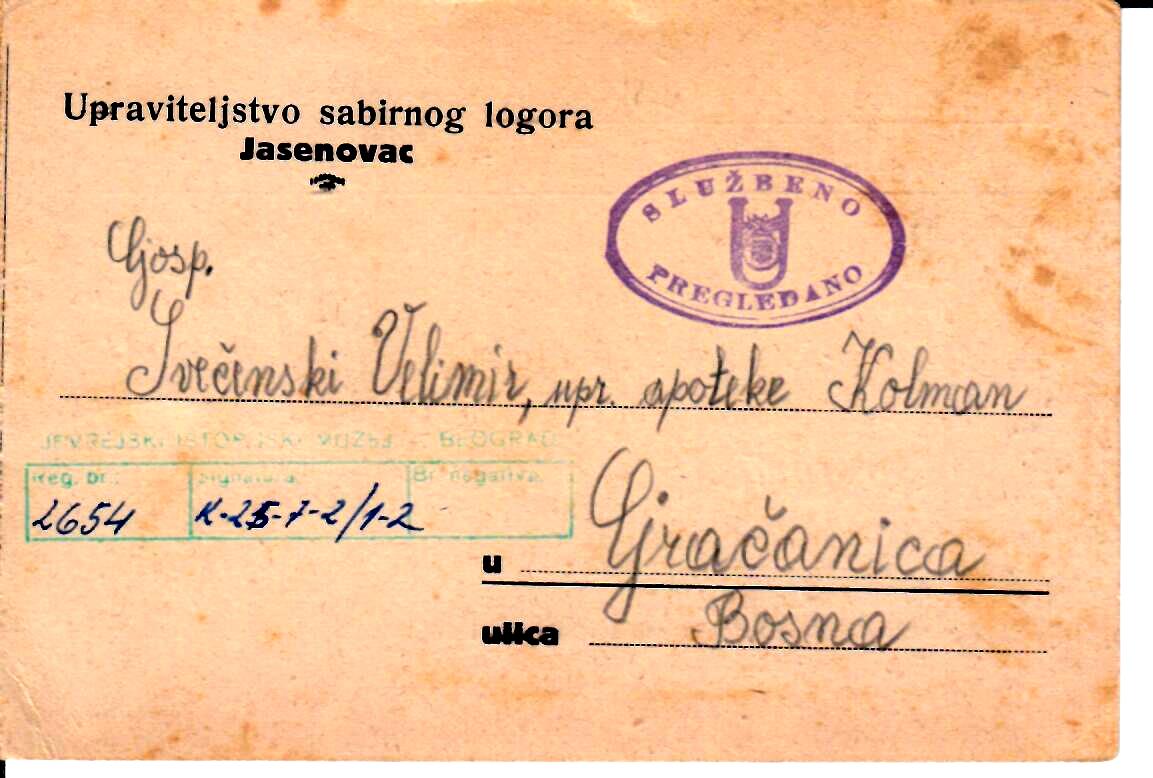 Upraviteljstvo sabirnog logora
Jasenovac
SLUŽBENO
U
PREGLEDANO
Gosp.
Svečenski Velimir, upr. apoteke Kolman
JEVREJSKI ISTORIJSKI MUZEJ — BEOGRAD
Reg. br.: Signatura: Br. negativa:
2654 K-25-7-2/1-2
u Gračanica
ulica Bosna